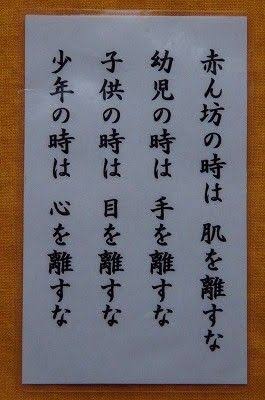 赤ん坊の時は 肌を離すな
幼児の時は 手を離すな
子供の時は 目を離すな
少年の時は 心を離すな